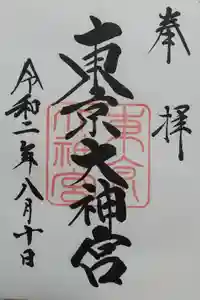 奉拝
東京大神宮
令和二年八月十日
東京大神宮